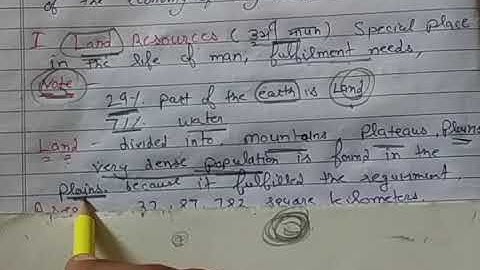 of the economy
I Land Resources ( Special place
in the life of man, fulfilment needs,
Note
29% part of the earth is Land
71% water
Land - divided into, mountains, Plateaus, Plains
very dense population is found in the
Plains. because it fulfilled the requirment,
37, 87, 782 square kilometers.